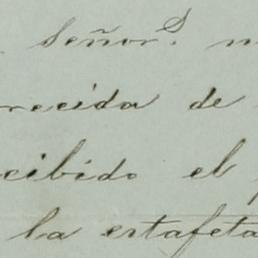 Señor.
recida de
cibido el
la estafeta